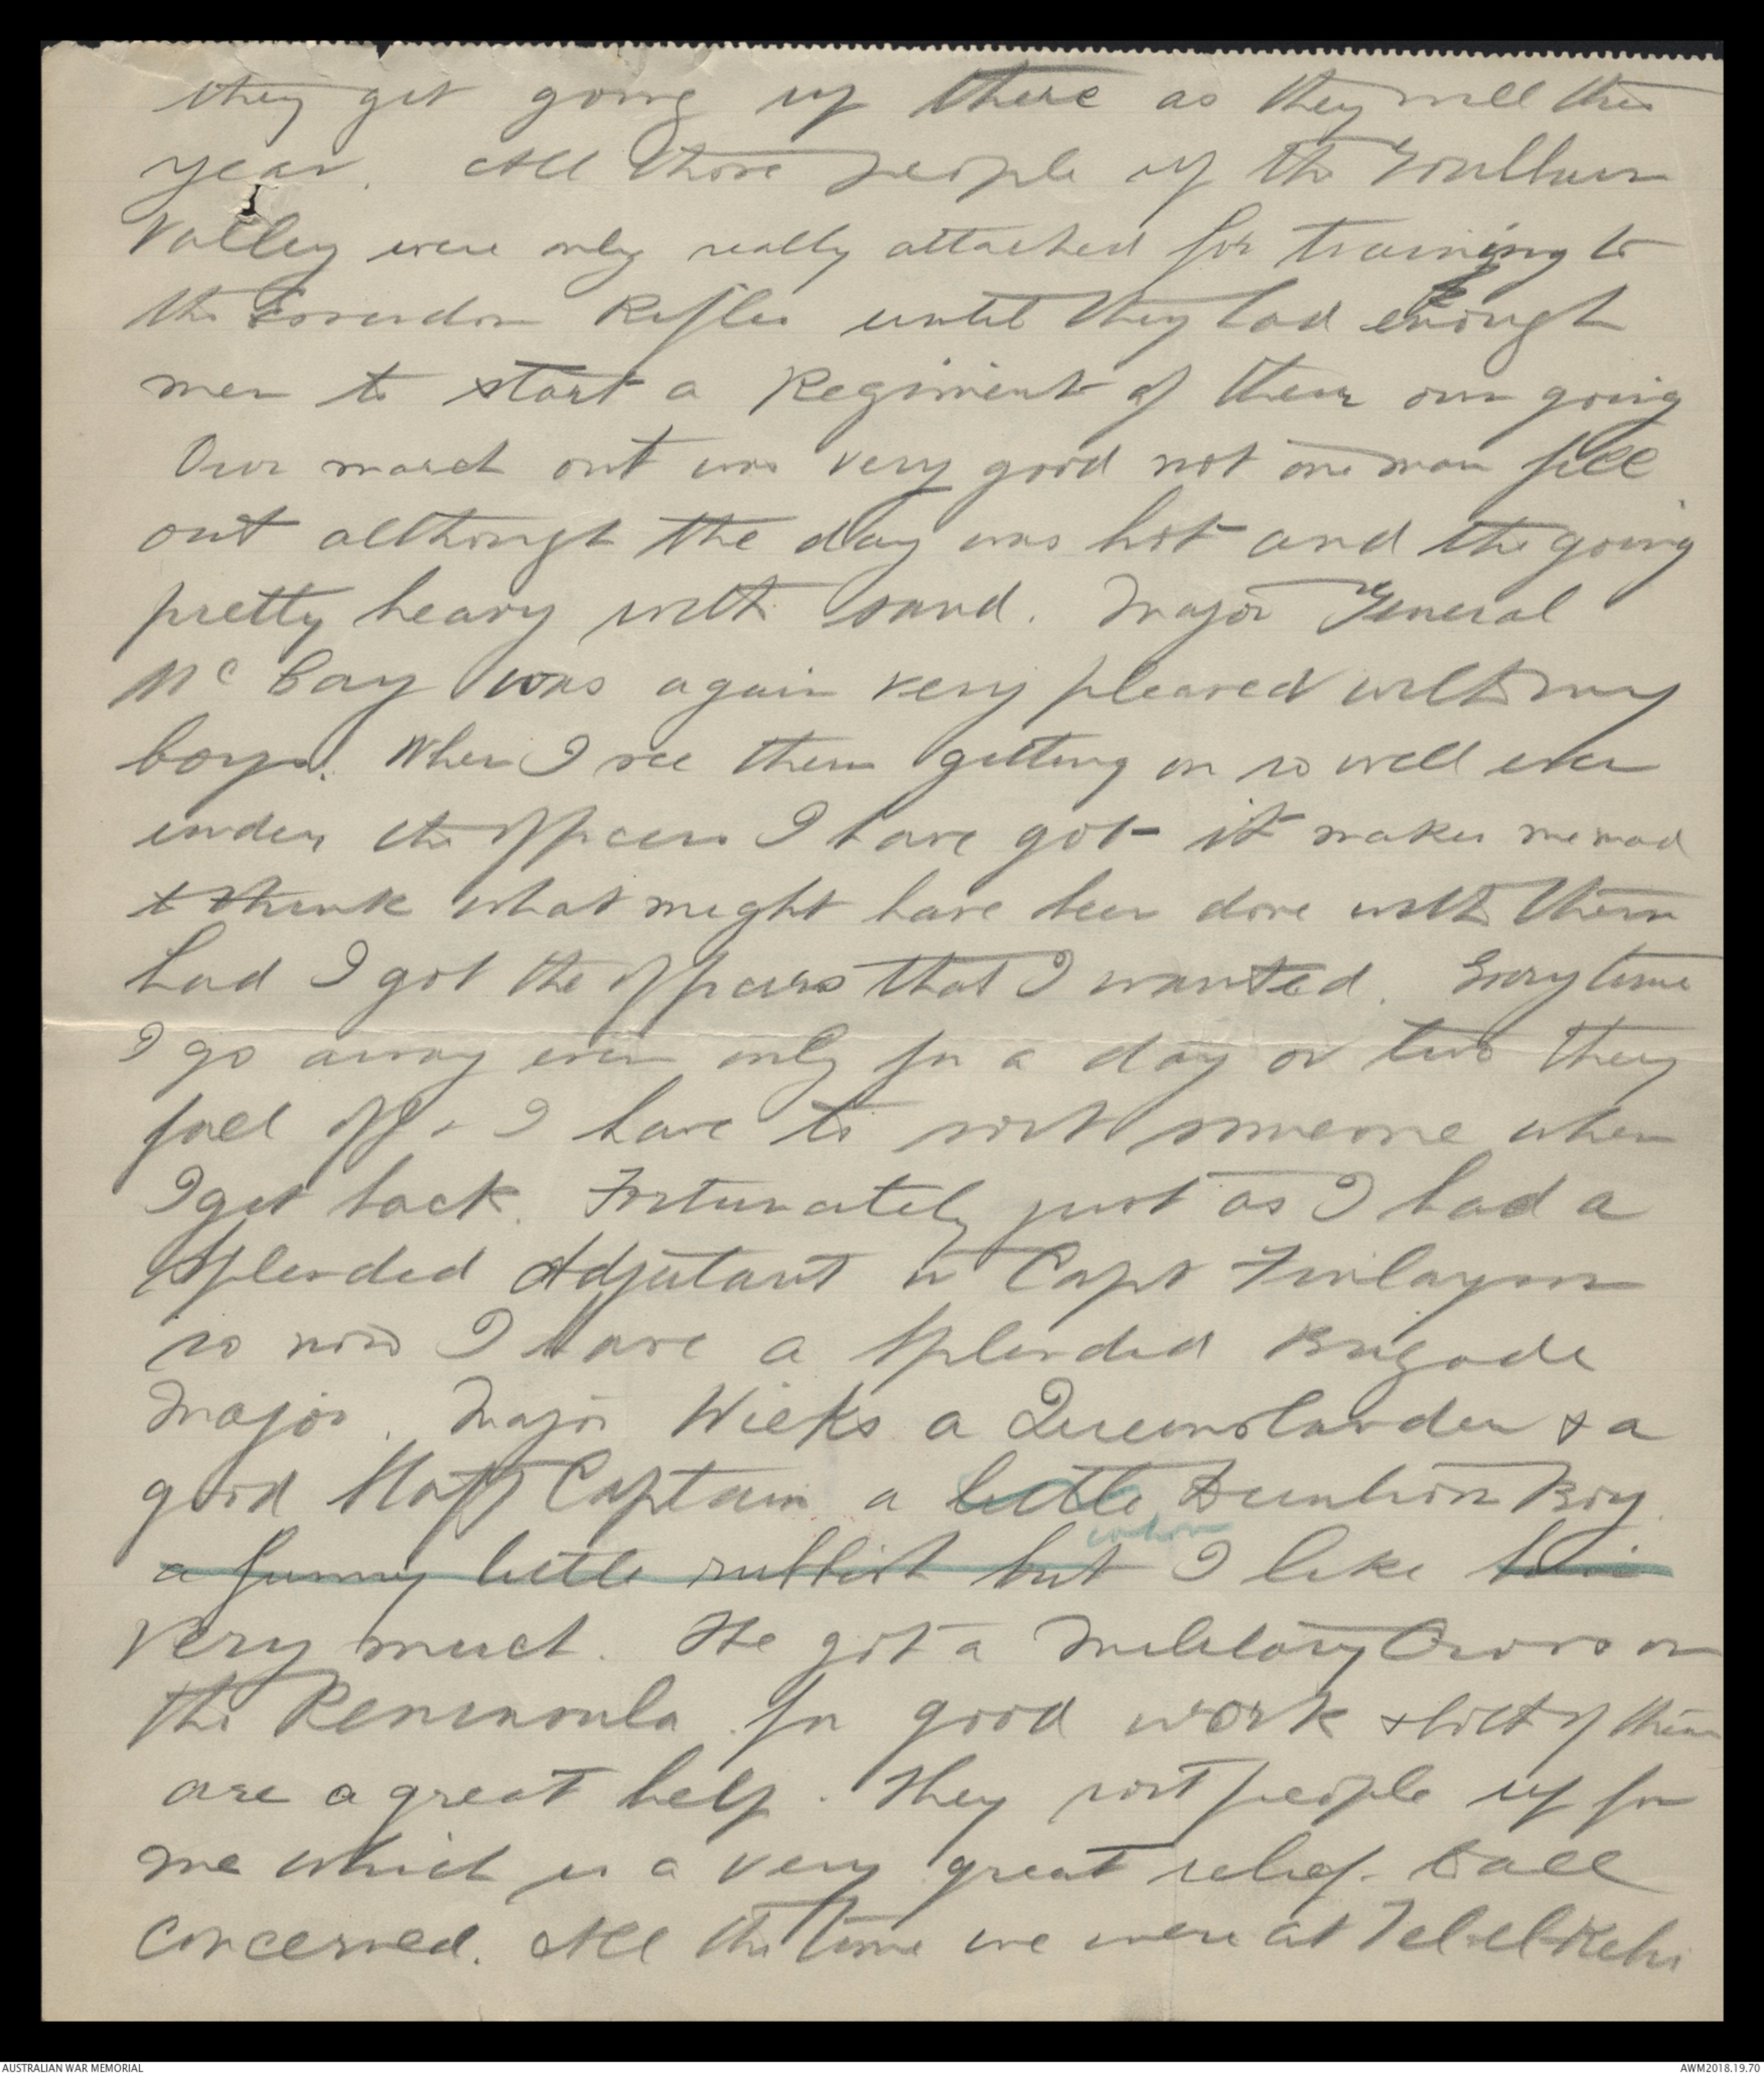 they get going up there as they will this
year. All those people up the Goulburn
Valley were only really attached for training to
the Essendon Rifles until they had enough
men to start a Regiment of their own going
Our march out was very good not one man fell
out although the day was hot and the going
pretty heavy with sand. Major General
McCay was again very pleased with my
boys. When I see them getting on so well even
under the officers I have got it makes me mad
to think what might have been done with them
had I got the officers that I wanted. Every time
I go away even only for a day or two they
fall off & I have to sort someone when
I get back. Fortunately just as I had a
splendid Adjutant in Capt Finlayson
so now I have a splendid Brigade
Major. Major Wieks a Queenslander & a
good Staff Captain a little Duntroon Boy
whom
a funny little rubbish but I like him
very much. He got a Military Cross on
the Peninsula for good work & both of them
are a great help. They sort people up for
me which is a very great relief to all
concerned. All the time we were at Tel-el-Kebir
AUSTRALIAN WAR MEMORIAL
AWM2018.19.70